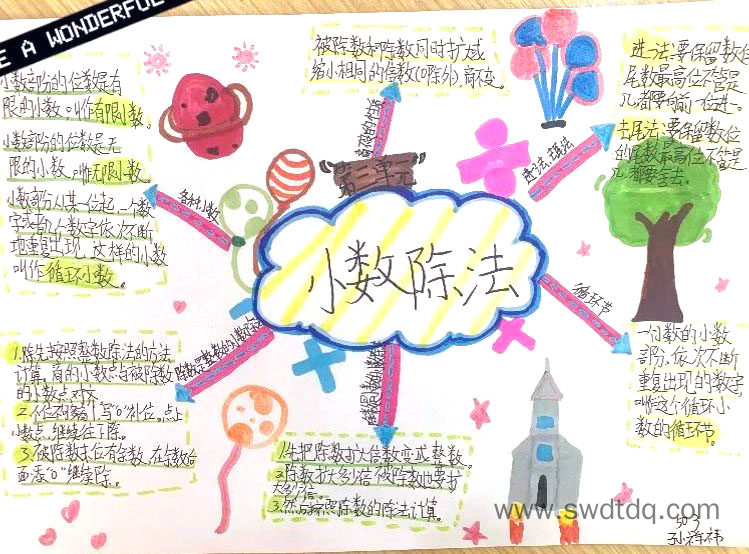 E A WONDERFUL
小数部分的位数是有
限的小数。叫作有限小数。
小数部分的位数是无
限的小数,叫无限小数。
小数部分从某一位起,一个数
字或者几个数字依次不断
地重复出现,这样的小数
叫作循环小数。
被除数和除数同时扩大或
缩小相同的倍数(0除外),商不变。
进一法:要保留数位
尾数最高位不管是
几,都要向前一位进。
去尾法:要保留数位
的尾数最高位不管是
几,都要舍去。
各种小数
第三单元
小数除法
循环节
除数是整数的小数除法
1.除先按照整数除法的方法
计算,商的小数点与被除数
的小数点对齐
2.个位不够商1,写"0"补位。点上
小数点,继续往下除。
3.被除数末位有余数,在余数后
面添"0"继续除。
1.先把除数扩大倍数变成整数。
2.除数扩大多少倍,被除数也要扩
大多少倍。
3.然后按照除数的除法计算。
一位数的小数
部分,依次不断
重复出现的数字
叫作这个循环小
数的循环节。
www.swdtdq.com
503